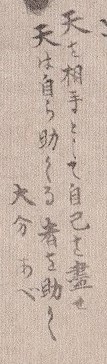 天を相手として自己を盡せ
天は自ら助くる者を助く
大分 あべ